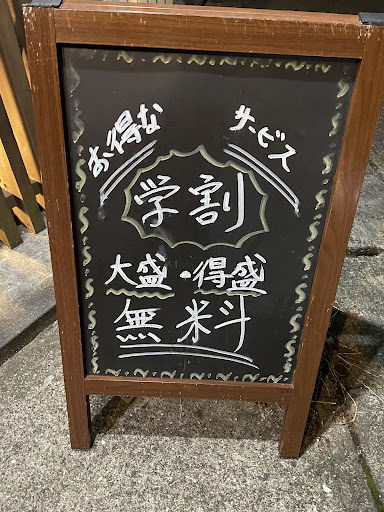 お得な
サービス
学割
大盛・得盛
無料